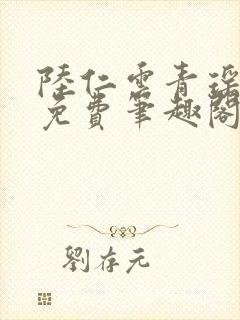 陸仁雲青瑤
免費筆趣閣
劉存元